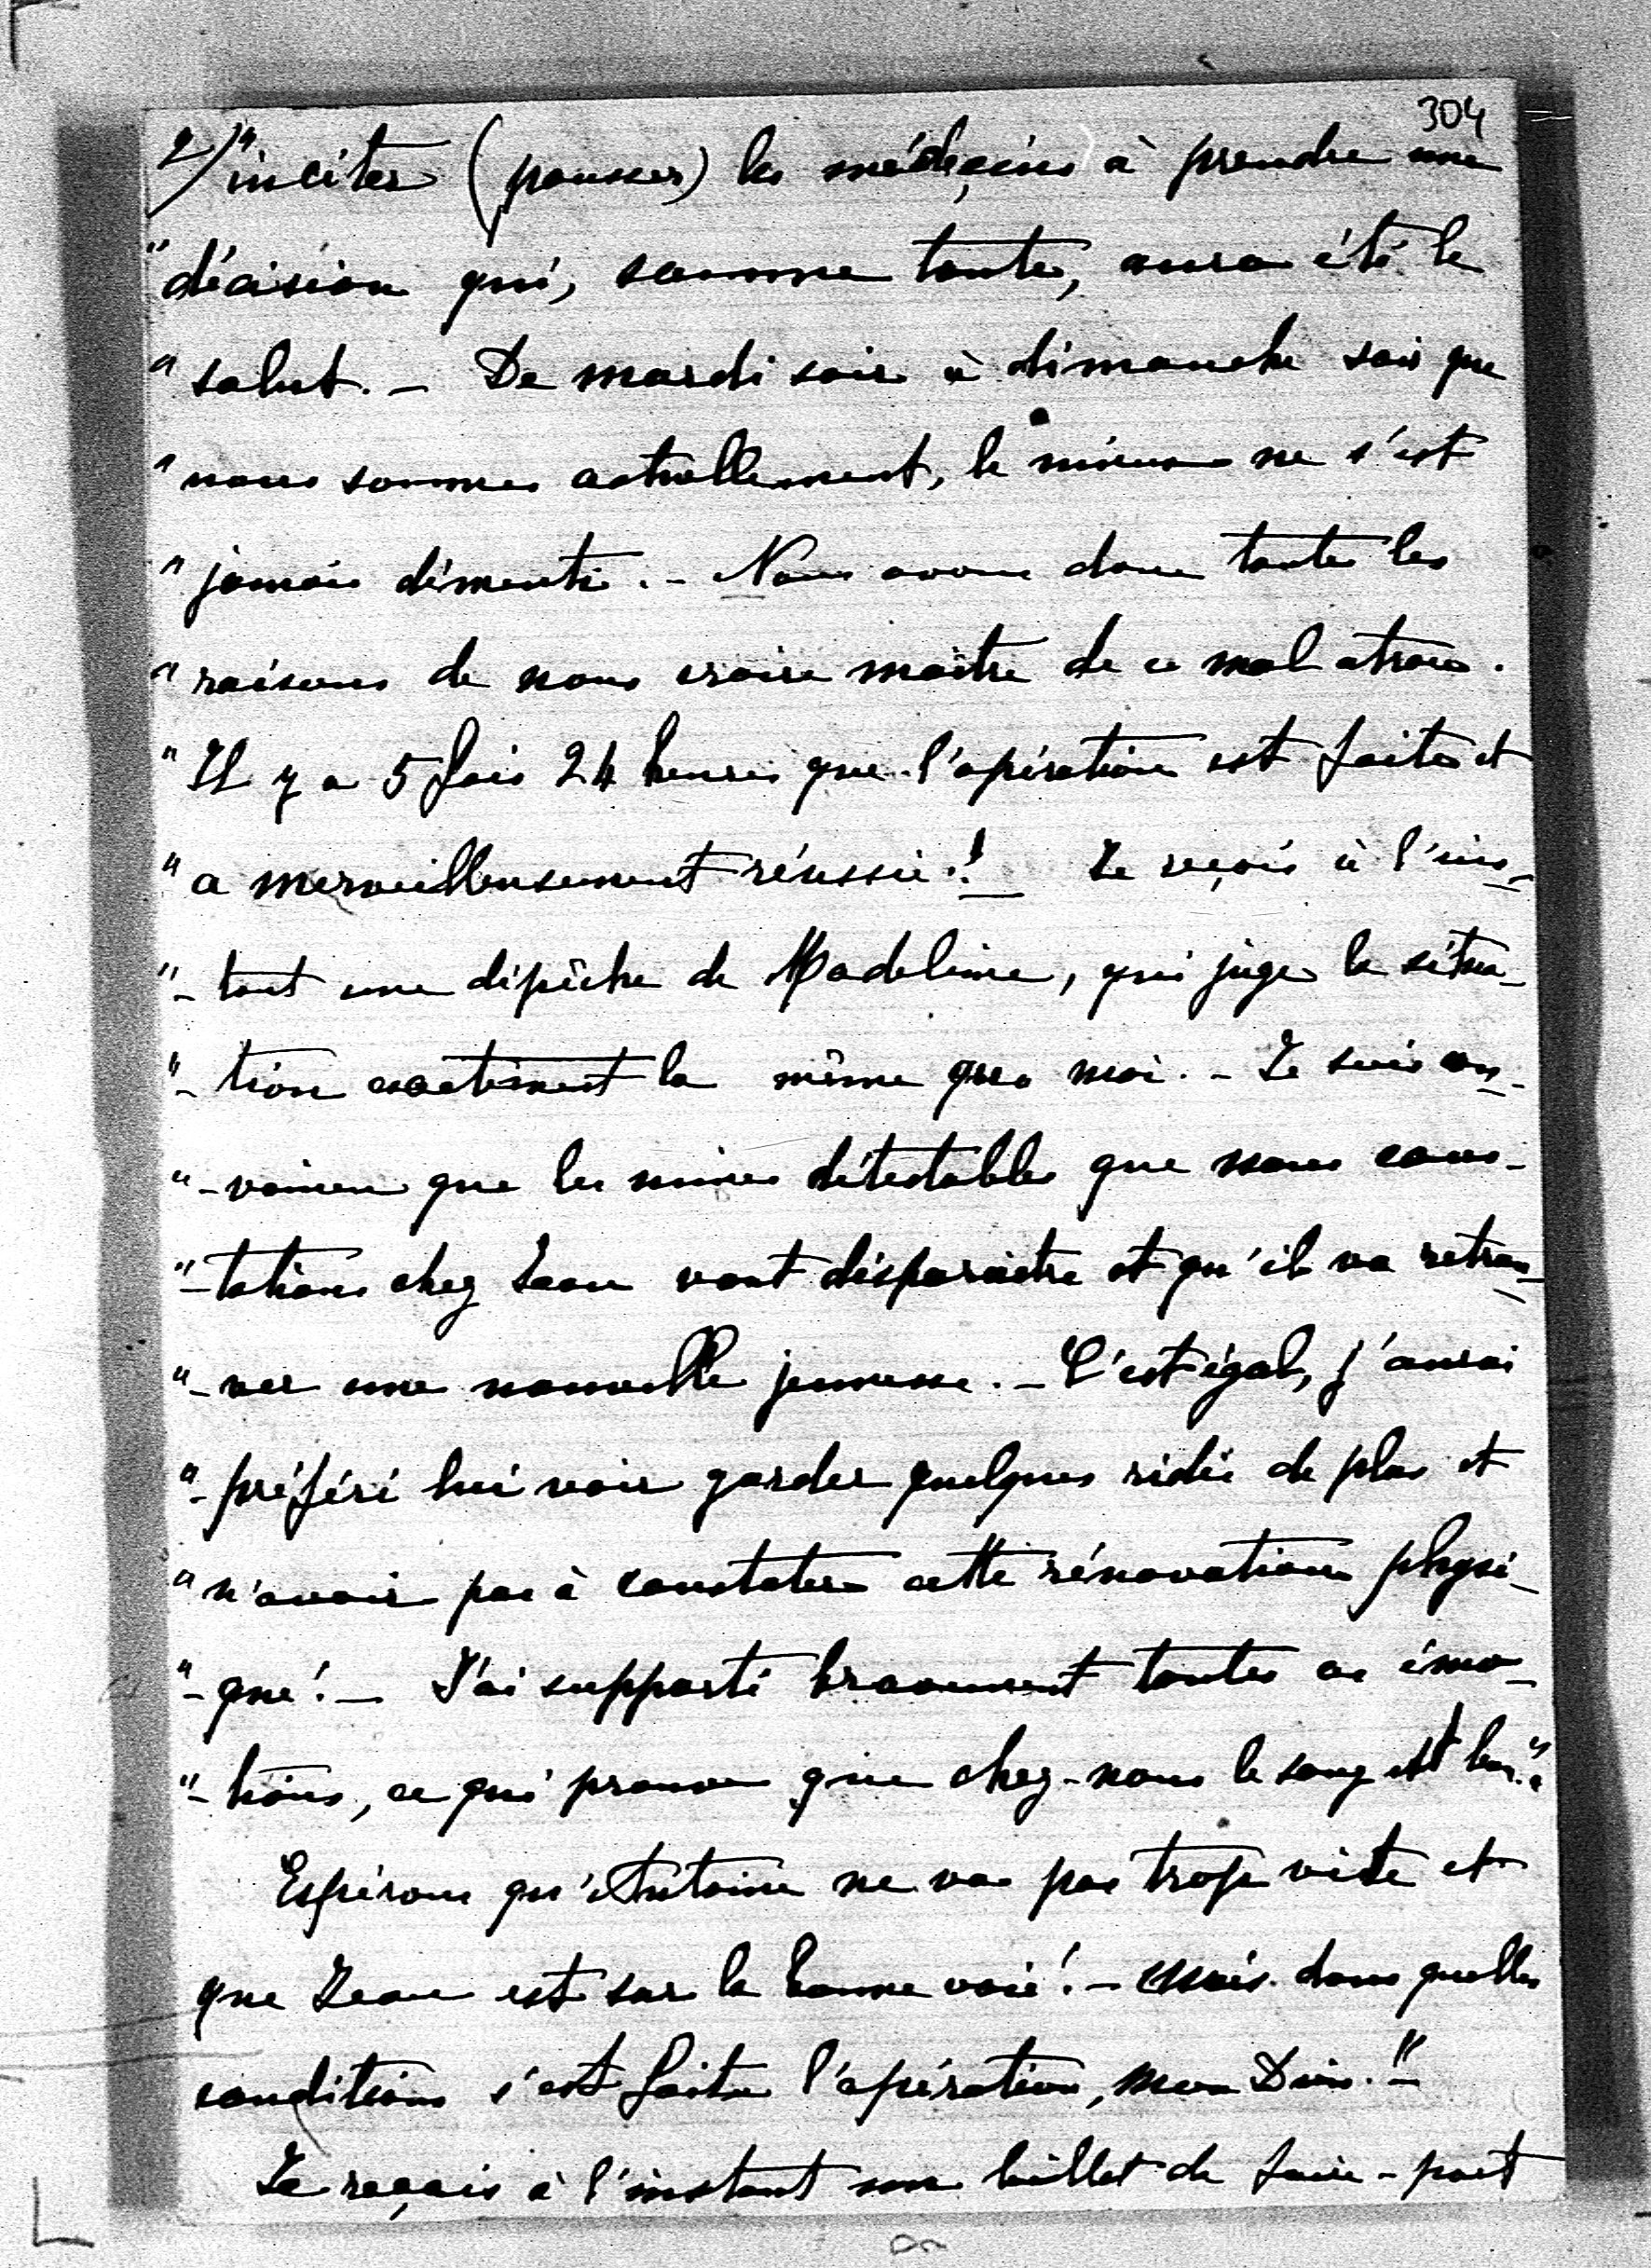 304
2/ "inciter (pousser) les médecins à prendre une
"décision qui, somme toute, aura été le
"salut. — De mardi soir à dimanche soir que
"nous sommes actuellement, le mieux ne s'est
"jamais démenti. — Nous avons donc toutes les
"raisons de nous croire maître de ce mal atroce.
"Il y a 5 fois 24 heures que l'opération est faite et
"a merveilleusement réussie! — Je reçois à l'ins-
"-tant une dépêche de Madeleine, qui juge la situa-
"-tion exactement la même que moi. — Je suis con-
"-vaincu que les mines détestables que nous cons-
"-tations chez Jean vont disparaitre et qu'il va retrou-
"-ver une nouvelle jeunesse. — C'est égal, j'aurai
"-préféré lui voir garder quelques rides de plus et
"n'avoir pas à constater cette rénovation physi-
"-que! — J'ai supporté bravement toutes ces émo-
"-tions, ce qui prouve que chez-nous le sang est bon."
Espérons qu'Antoine ne va pas trop vite et
que Jean est sur la bonne voie! — Mais dans quelles
conditions s'est faite l'opération, mon Dieu! —
Je reçois à l'instant un billet de faire-part